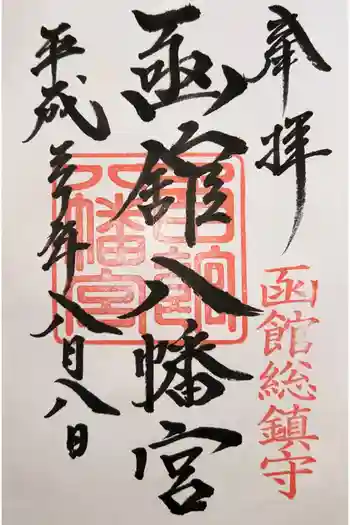 奉拝
函館総鎮守
函館八幡宮
函館
八幡宮
平成 年八月八日